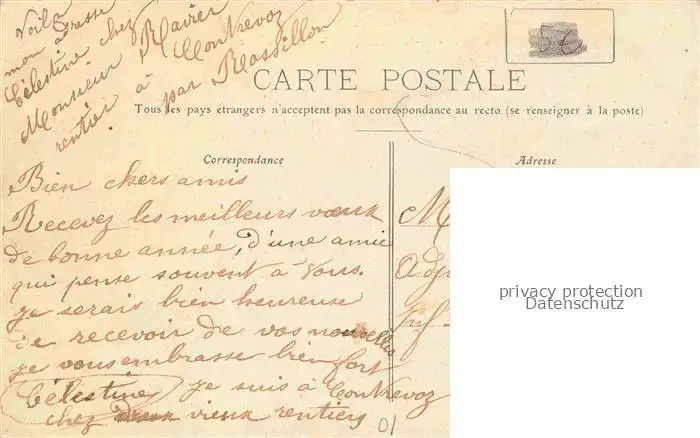 Voila
mon adresse
Célestine chez
Monsieur Ravier
rentier à Contrevoz
par Rossillon
56
CARTE POSTALE
Tous les pays étrangers n'acceptent pas la correspondance au recto (se renseigner à la poste)
Correspondance
Adresse
Bien chers amis
Recevez les meilleurs vœux
de bonne année, d'une amie
qui pense souvent à Vous.
je serais bien heureuse
de recevoir de vos nouvelles
je vous embrasse bien fort
Célestine je suis à Contrevoz
chez deux vieux rentiers
M
Adj
01
privacy protection
Datenschutz